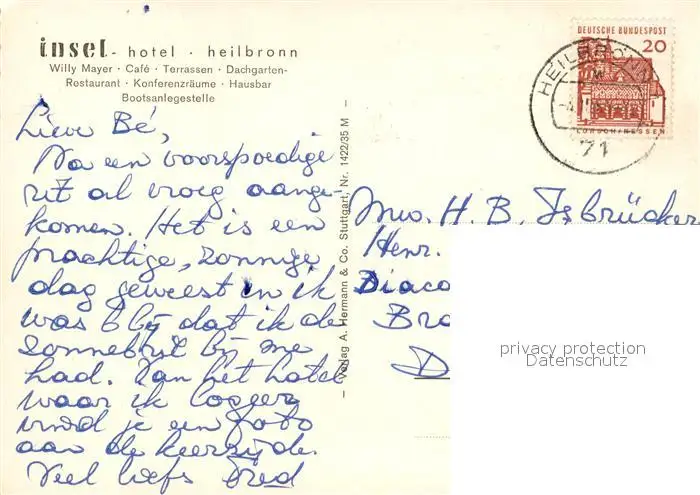 insel - hotel · heilbronn
Willy Mayer · Café · Terrassen · Dachgarten-
Restaurant · Konferenzräume · Hausbar
Bootsanlegestelle
Lieve Bé,
Na een voorspoedige
rit al vroeg aange-
komen. Het is een
prachtige, zonnige
dag geweest en ik
was blij dat ik de
zonnebril bij me
had. Van het hotel
waar ik logeer
vind je een foto
aan de keerzijde.
Veel liefs Fred
– Verlag A. Hermann & Co. Stuttgart, Nr. 1422/35 M –
DEUTSCHE BUNDESPOST
20
LORSCH/HESSEN
HEILBRONN
71
Mw. H. B. IJsbrücker
Henr.
Diaco
Bro
D
privacy protection
Datenschutz